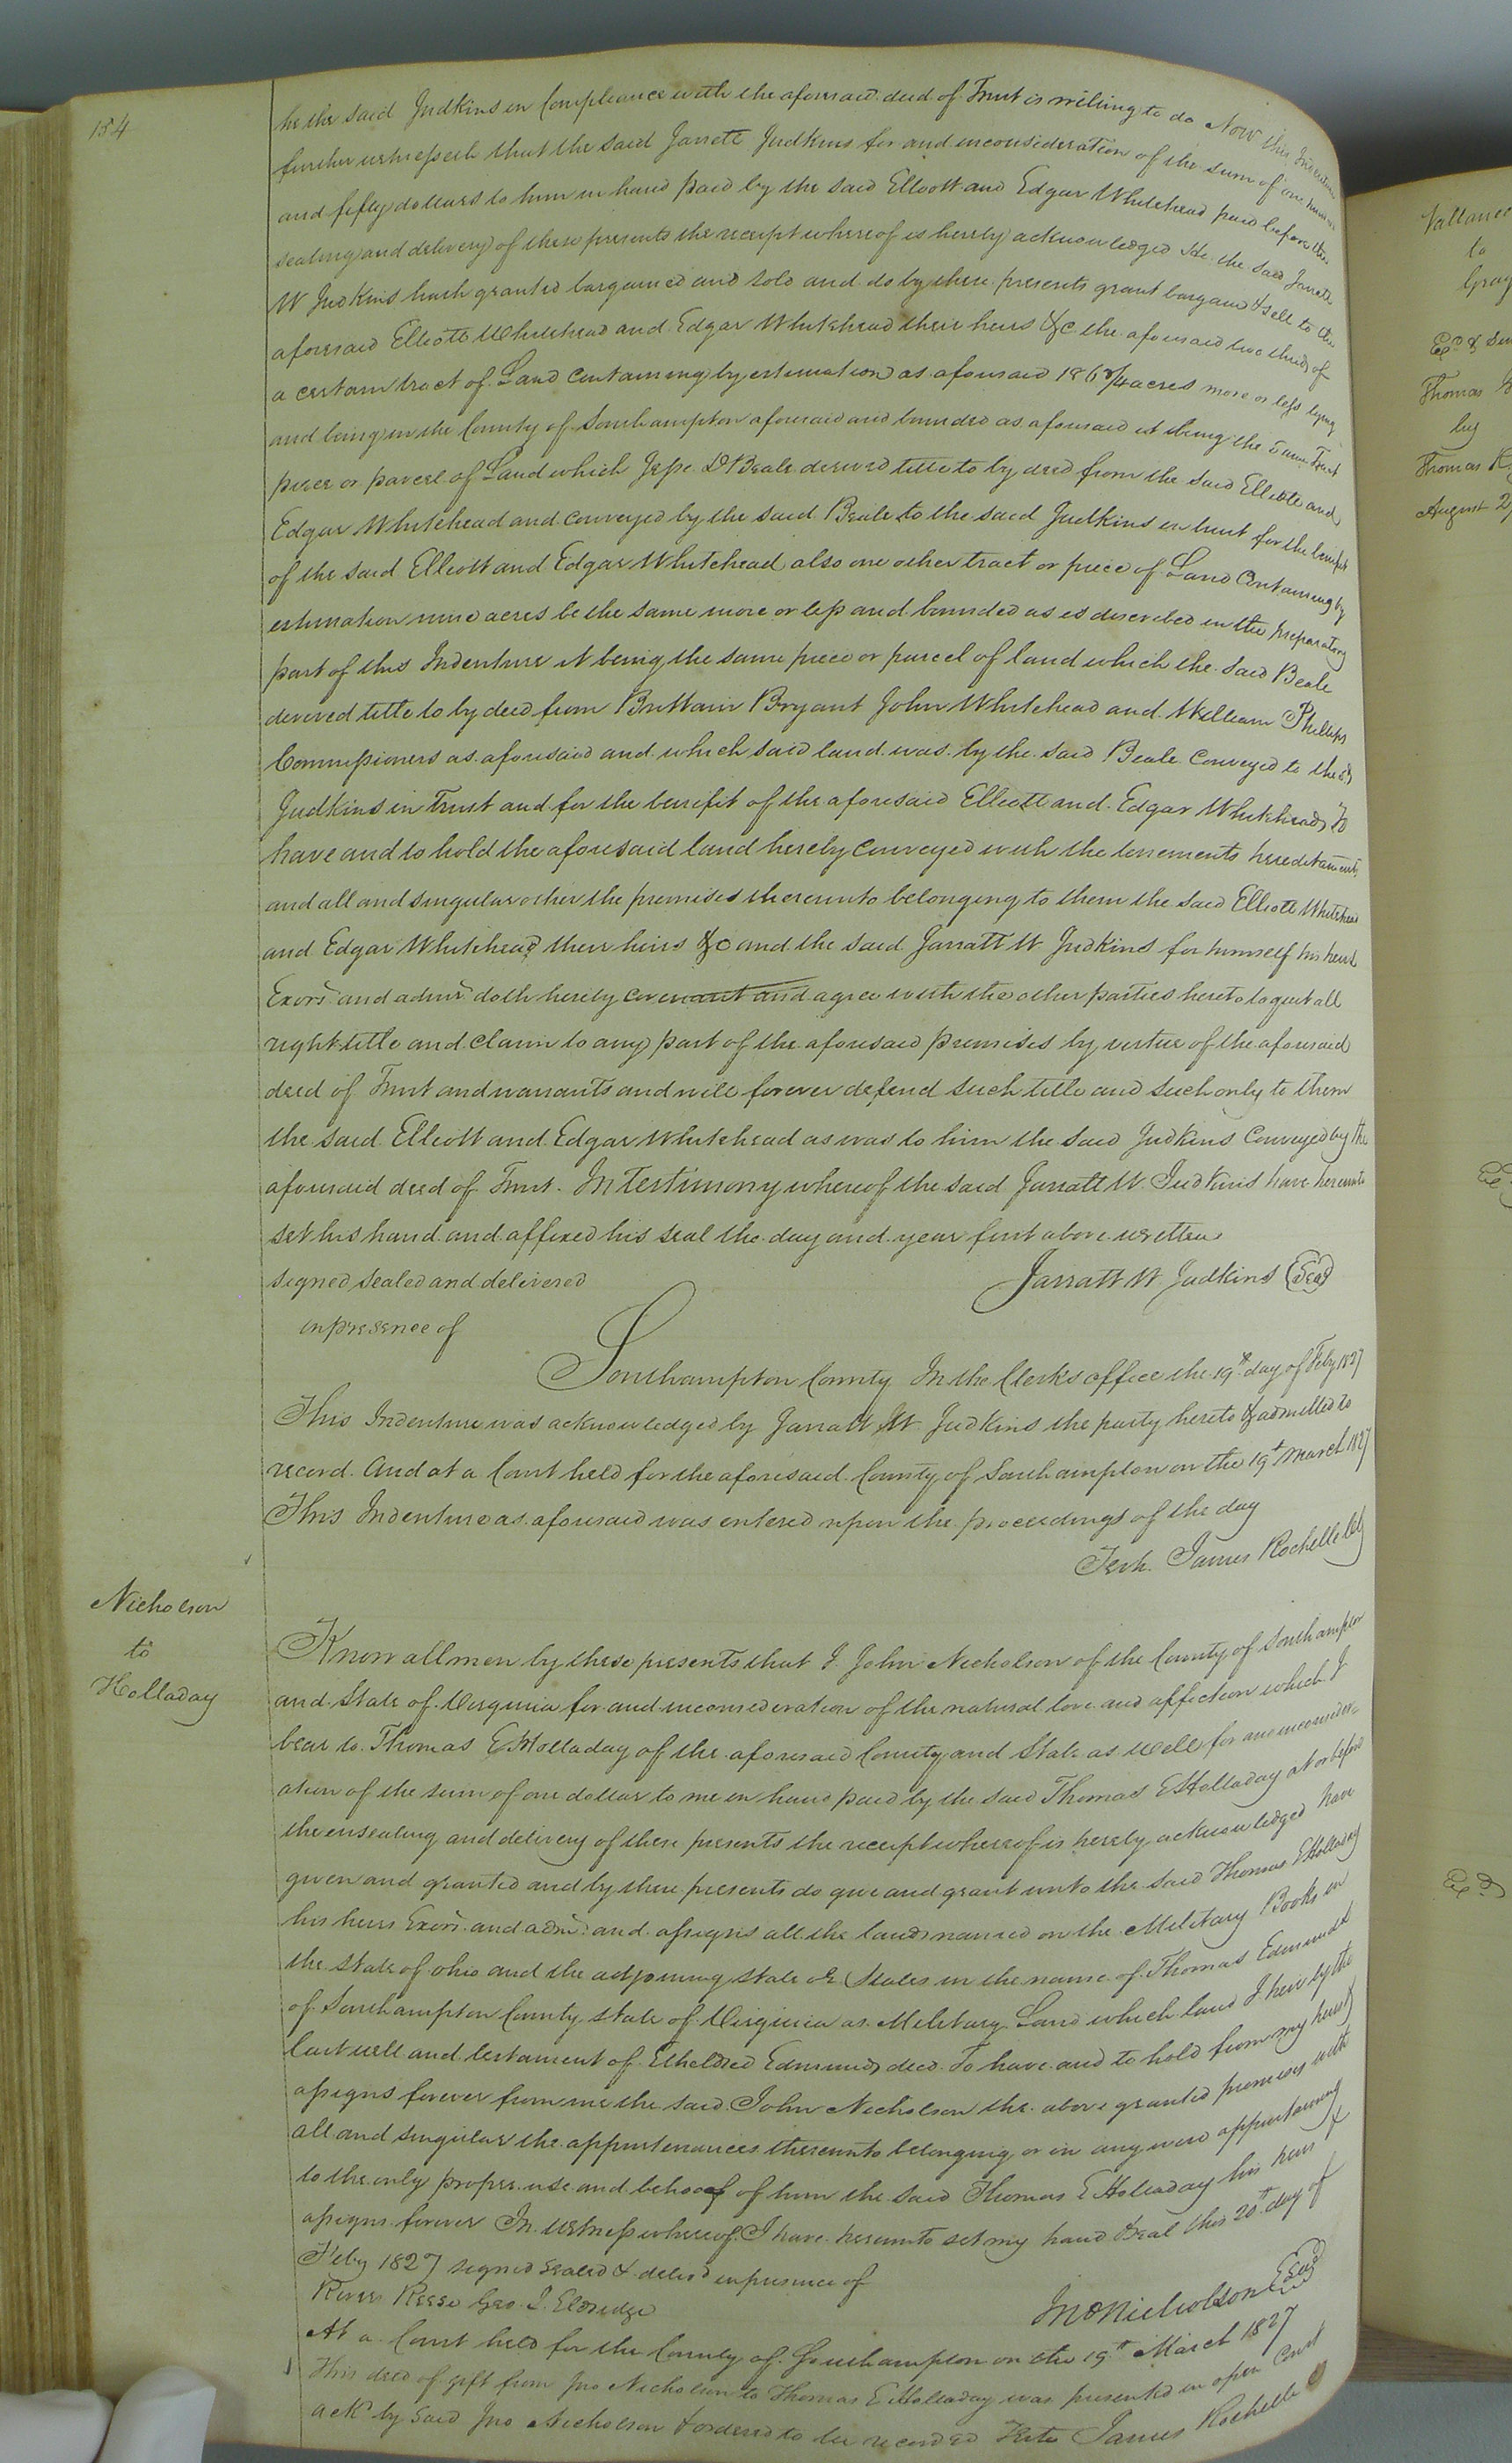 184
he the said Judkins in Compliance with the aforesaid deed of Trust is willing to do Now this Indenture
further witnesseth that the said Jarrett Judkins for and inconsideration of the sum of one hundred
and fifty dollars to him in hand paid by the said Elliott and Edgar Whitehead paid before the
sealing and delivery of these presents the receipt whereof is hereby acknowledged He the said Jarratt
W Judkins hath granted bargained and sold and do by these presents grant bargain & sell to the
aforesaid Elliott Whitehead and Edgar Whitehead their heirs &c the aforesaid two thirds of
a certain tract of Land Containing by estimation as aforesaid acres more or less lying
and being in the County of Southampton aforesaid and bounded as aforesaid it being the same Tract
piece or parcel of Land which Jesse D Beale derived title to by deed from the said Elliott and
Edgar Whitehead and conveyed by the said Beale to the said Judkins in trust for the benefit
of the said Elliott and Edgar Whitehead also one other tract or piece of Land Containing by
estimation nine acres be the same more or less and bounded as is described in the preparatory
part of this Indenture it being the same piece or parcel of land which the said Beale
derived title to by deed from Brittain Bryant John Whitehead and William Phillips
Commissioners as aforesaid and which said land was by the said Beale Conveyed to the sd
Judkins in Trust and for the benefit of the aforesaid Elliott and Edgar Whitehead, To
have and to hold the aforesaid land hereby Conveyed with the tenements hereditaments
and all and singular other the premises thereunto belonging to them the said Elliott Whitehead
and Edgar Whitehead their heirs &c and the said Jarratt W Judkins for himself his heirs
Exors and admrs doth hereby covenant and agree with the other parties hereto to quit all
right title and claim to any part of the aforesaid premises by vertue of the aforesaid
deed of Trust and warrants and will forever defend such title and such only to them
the said Elliott and Edgar Whitehead as was to him the said Judkins Conveyed by the
aforesaid deed of Trust. In Testimony whereof the said Jarratt W. Judkins have hereunto
set his hand and affixed his seal the day and year first above written
signed sealed and delivered Jarratt W Judkins (Seal)
in presence of
Southampton County In the Clerks office the 19th day of Feby 1827
This Indenture was acknowledged by Jarratt W Judkins the party hereto & admitted to
record. And at a Court held for the aforesaid County of Southampton on the 19t March 1827
This Indenture as aforesaid was entered upon the proceedings of the day
Teste. James Rochelle Clk
Nicholson
to
Holladay
Know all men by these presents that I John Nicholson of the County of Southampton
and State of Virginia for and inconsideration of the natural love and affection which I
bear to Thomas E Holladay of the aforesaid County and State as well for and inconsider
ation of the sum of one dollar to me in hand paid by the said Thomas E Holladay at or before
the ensealing and delivery of these presents the receipt whereof is hereby acknowledged have
given and granted and by these presents do give and grant unto the said Thomas E Holladay
his heirs Exors. and admrs. and assigns all the lands named on the Military Books in
the State of ohio and the adjoining State or States in the name of Thomas Edmunds
of Southampton County State of Virginia as Military Land which land I heir by the
last will and testament of Etheldred Edmunds decd. To have and to hold from my heirs &
assigns forever from me the said John Nicholson the above granted premises with
all and singular the appurtenances thereunto belonging or in any wise appertaining
to the only proper use and behoof of him the said Thomas E Holladay his heirs &
assigns forever In witness whereof I have hereunto set my hand & seal this 20th day of
Feby 1827 signed sealed & delivd in presence of
Rivers Reese Geo. J. Eldredge Jno Nicholson (Seal)
At a Court held for the County of Southampton on the 19th March 1827
This deed of gift from Jno Nicholson to Thomas E Holladay was presented in open Court
ack by said Jno Nicholson & ordered to be recorded Teste James Rochelle
Vallance
to
Gray
Thomas
by
Thomas
August